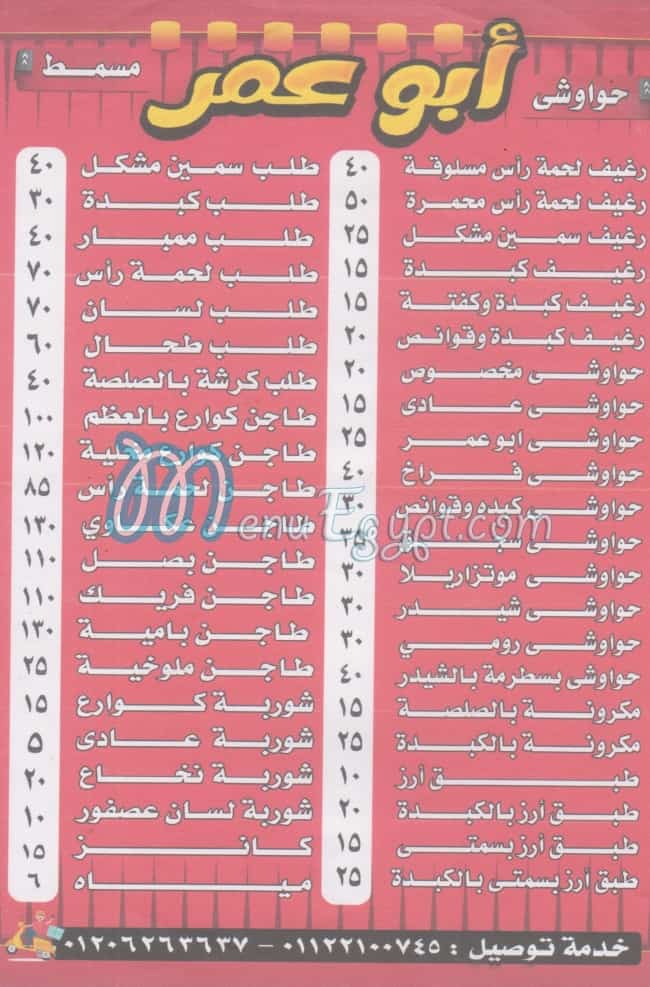 أبو عمر
حواوشى
مسمط
رغيف لحمة رأس مسلوقة ٤٠
رغيف لحمة رأس محمرة ٥٠
رغيف سمين مشكل ٢٥
رغيف كبدة ١٥
رغيف كبدة وكفتة ١٥
رغيف كبدة وقوانص ٢٠
حواوشى مخصوص ٢٠
حواوشى عادى ١٥
حواوشى ابو عمر ٢٥
حواوشى فراخ ٤٠
حواوشى كبده وقوانص ٣٠
حواوشى ٣٥
حواوشى موتزاريلا ٣٠
حواوشى شيدر ٣٠
حواوشى رومي ٣٠
حواوشى بسطرمة بالشيدر ٤٠
مكرونة بالصلصة ١٥
مكرونة بالكبدة ٢٥
طبق أرز ١٠
طبق أرز بالكبدة ٢٠
طبق أرز بسمتى ١٥
طبق أرز بسمتى بالكبدة ٢٥
طلب سمين مشكل ٤٠
طلب كبدة ٣٠
طلب ممبار ٤٠
طلب لحمة رأس ٧٠
طلب لسان ٧٠
طلب طحال ٦٠
طلب كرشة بالصلصة ٤٠
طاجن كوارع بالعظم ١٠٠
طاجن كوارع ١٢٠
طاجن لحمة رأس ٨٥
طاجن عكاوي ١٣٠
طاجن بصل ١١٠
طاجن فريك ١١٠
طاجن بامية ١٣٠
طاجن ملوخية ٢٥
شوربة كوارع ١٥
شوربة عادى ٥
شوربة نخاع ٢٠
شوربة لسان عصفور ١٠
كانز ١٥
مياه ٦
MenuEgypt.com
خدمة توصيل : ٠١١٢٢١٠٠٧٤٥ - ٠١٢٠٦٢٦٣٦٣٧